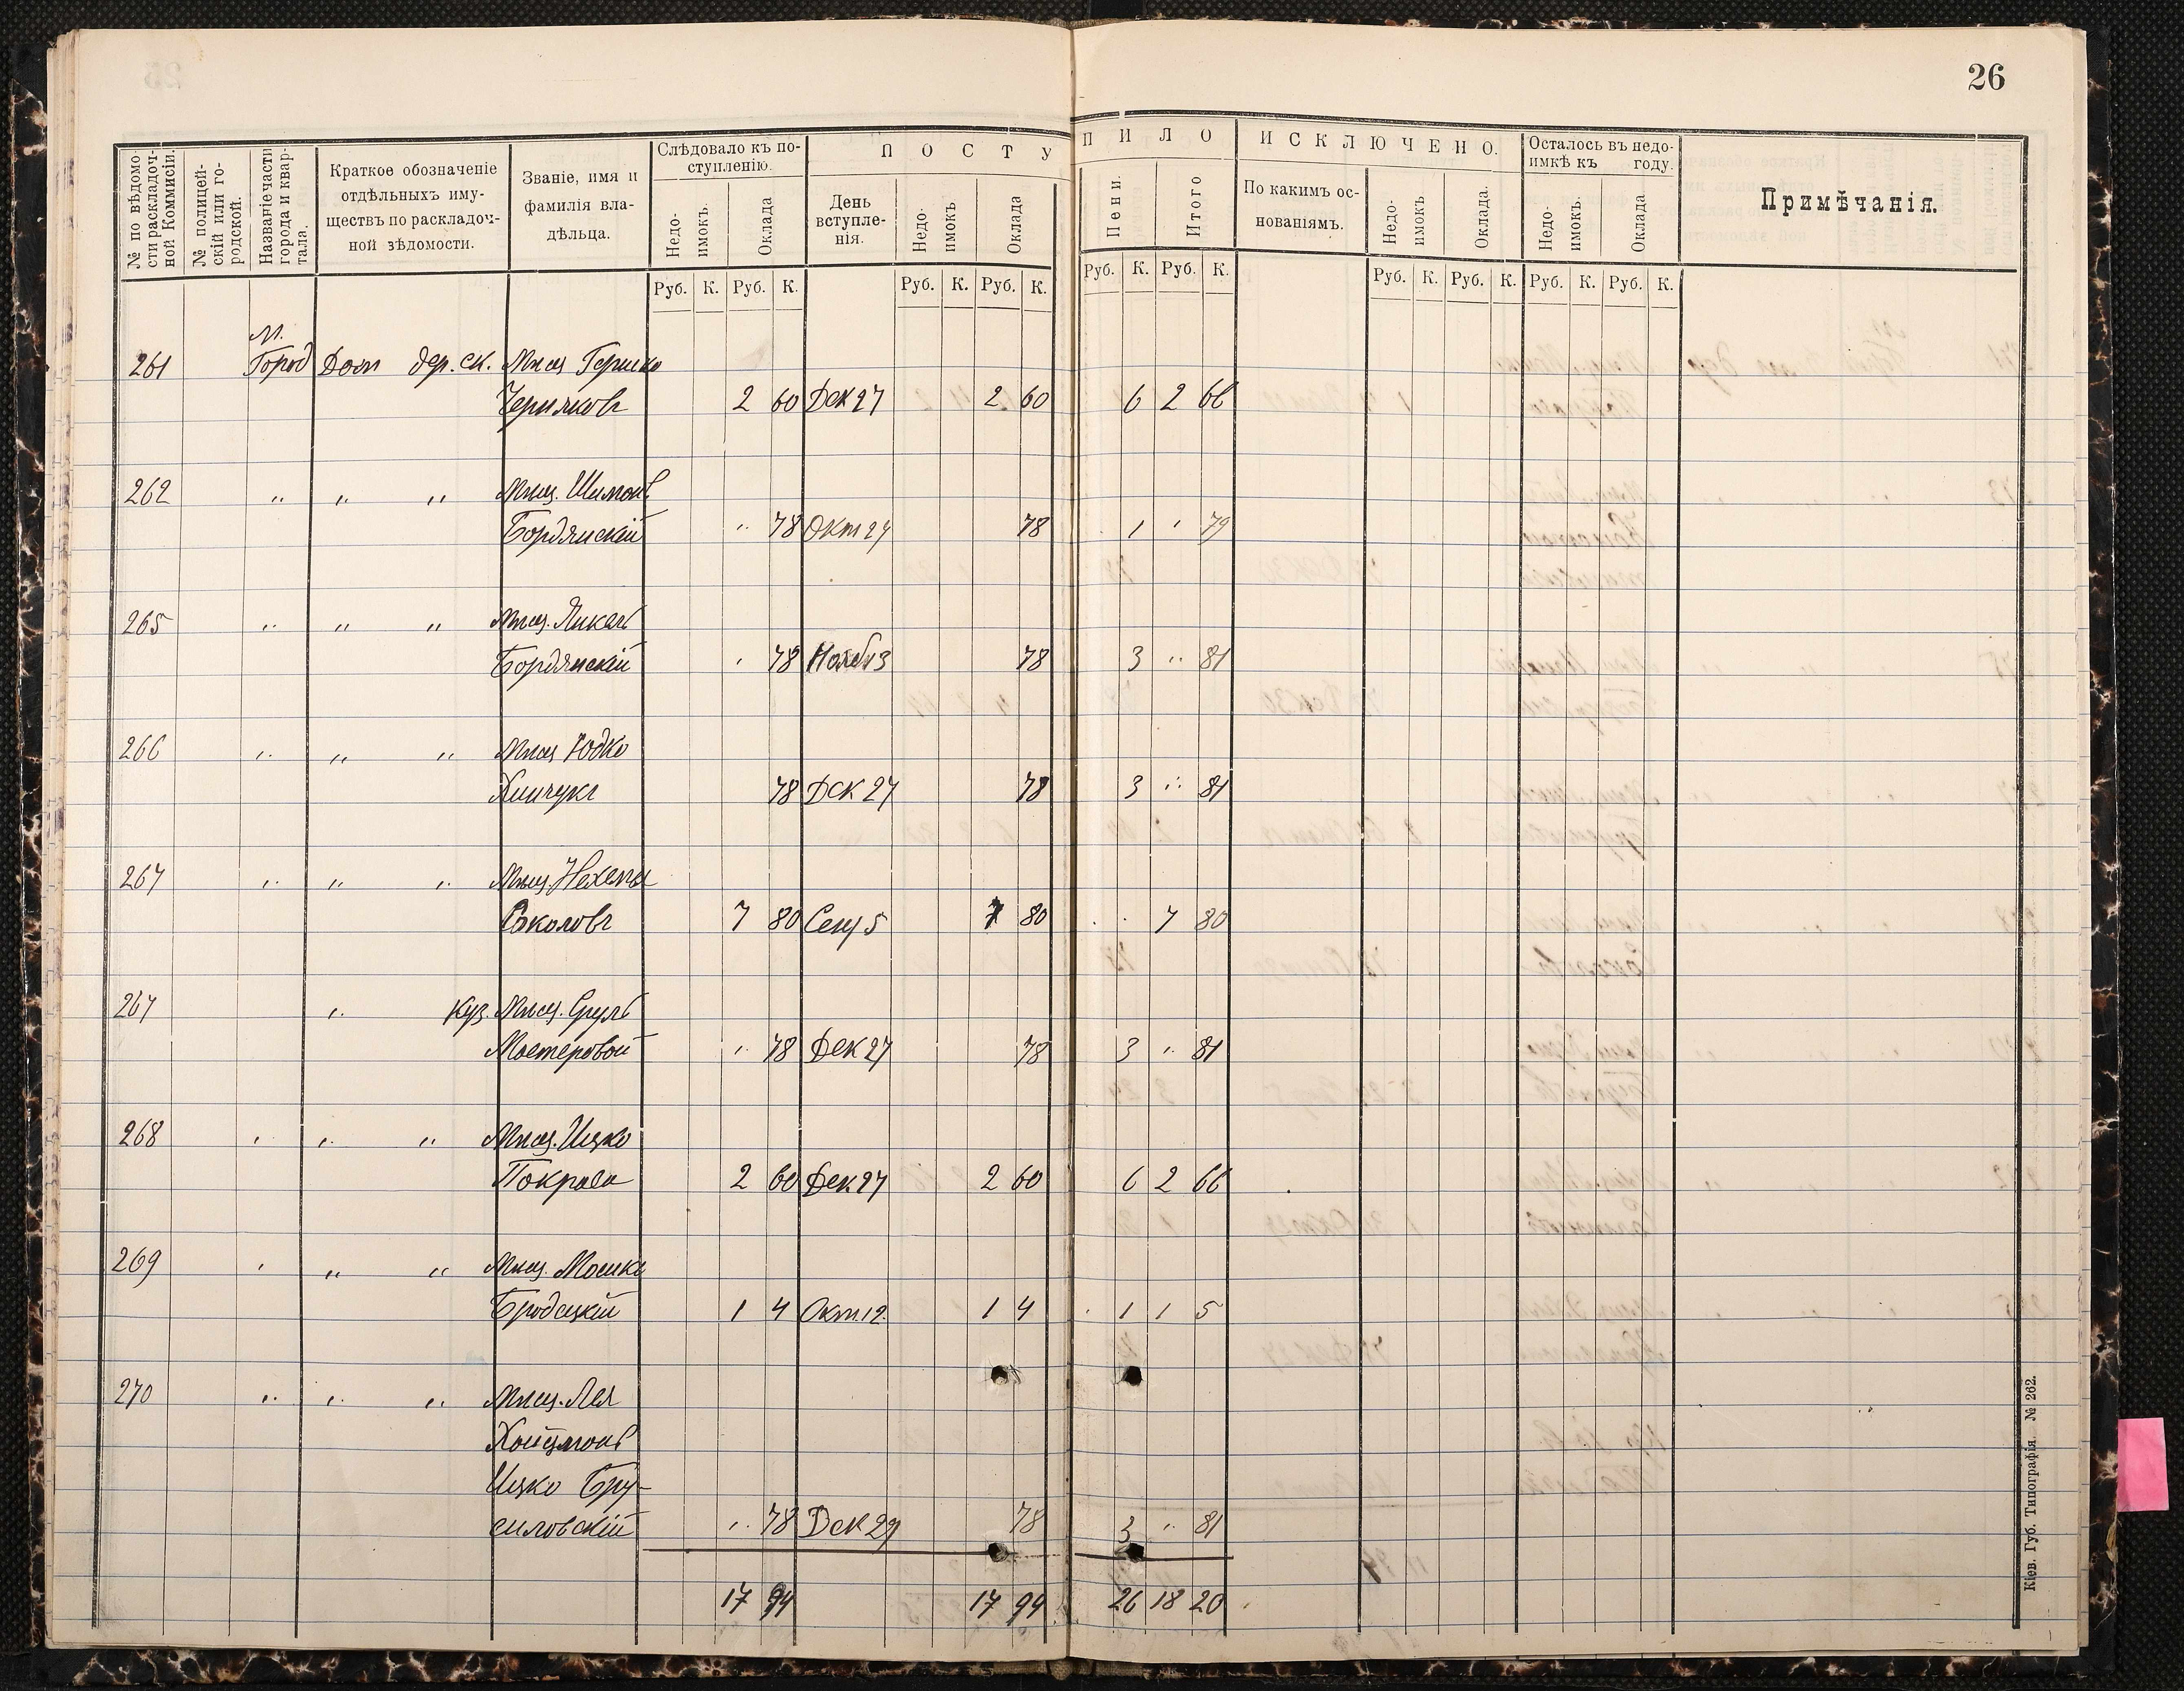 26
№ по вѣдомо-
сти раскладоч-
ной Коммисіи.
№ полицей-
скій или го-
родской.
Названіе части
города и квар-
тала.
Краткое обозначеніе
отдѣльныхъ иму-
ществъ по раскладоч-
ной зѣдомости.
Званіе, имя и
фамилія вла-
дѣльца.
Слѣдовало къ по-
ступленію.
Недо-
имокъ.
Оклада
ПОСТУ
День
вступле-
нія.
Недо-
имокъ
Оклада
ПИЛО
Пени.
Итого
ИСКЛЮЧЕНО.
По какимъ ос-
нованіямъ.
Недо-
имокъ
Оклада.
Осталось въ недо-
имкѣ къ году.
Недо-
имокъ.
Оклада
Примѣчанія.
Руб. К. Руб. К. Руб. К. Руб. К. Руб. К. Руб. К. Руб. К. Руб. К. Руб. К. Руб. К.
М.
261 Город Дом дер. Мѣщ Гершко
Черняковъ 2 60 Дек 27 2 60 6 2 66
262 " " " Мѣщ. Шимонъ
Бордянскій " 78 Окт 27 78 1 " 79
265 " " " Мѣщ.
Бордянскій " 78 Нояб 13 78 3 " 81
266 " " " Мѣщ Юдко
Хинчукъ 78 Дек 27 78 3 " 81
267 " " " Мѣщ. Нахемъ
Соколовъ 7 80 Сен 5 7 80 7 80
267 " Куз. Мѣщ. Сруль
Мостеровой " 78 Дек 27 78 3 " 81
268 " " " Мѣщ. Ицко
Покраса 2 60 Дек 27 2 60 6 2 66
269 " " " Мѣщ. Мошко
Бродецкій 1 4 Окт. 12. 1 4 1 1 5
270 " " " Мѣщ. Лея
Хоицмонъ
Ицко Бру-
силовскій " 78 Дек 29 78 3 " 81
17 94 17 94 26 18 20
Кіев. Губ. Типографія. № 262.